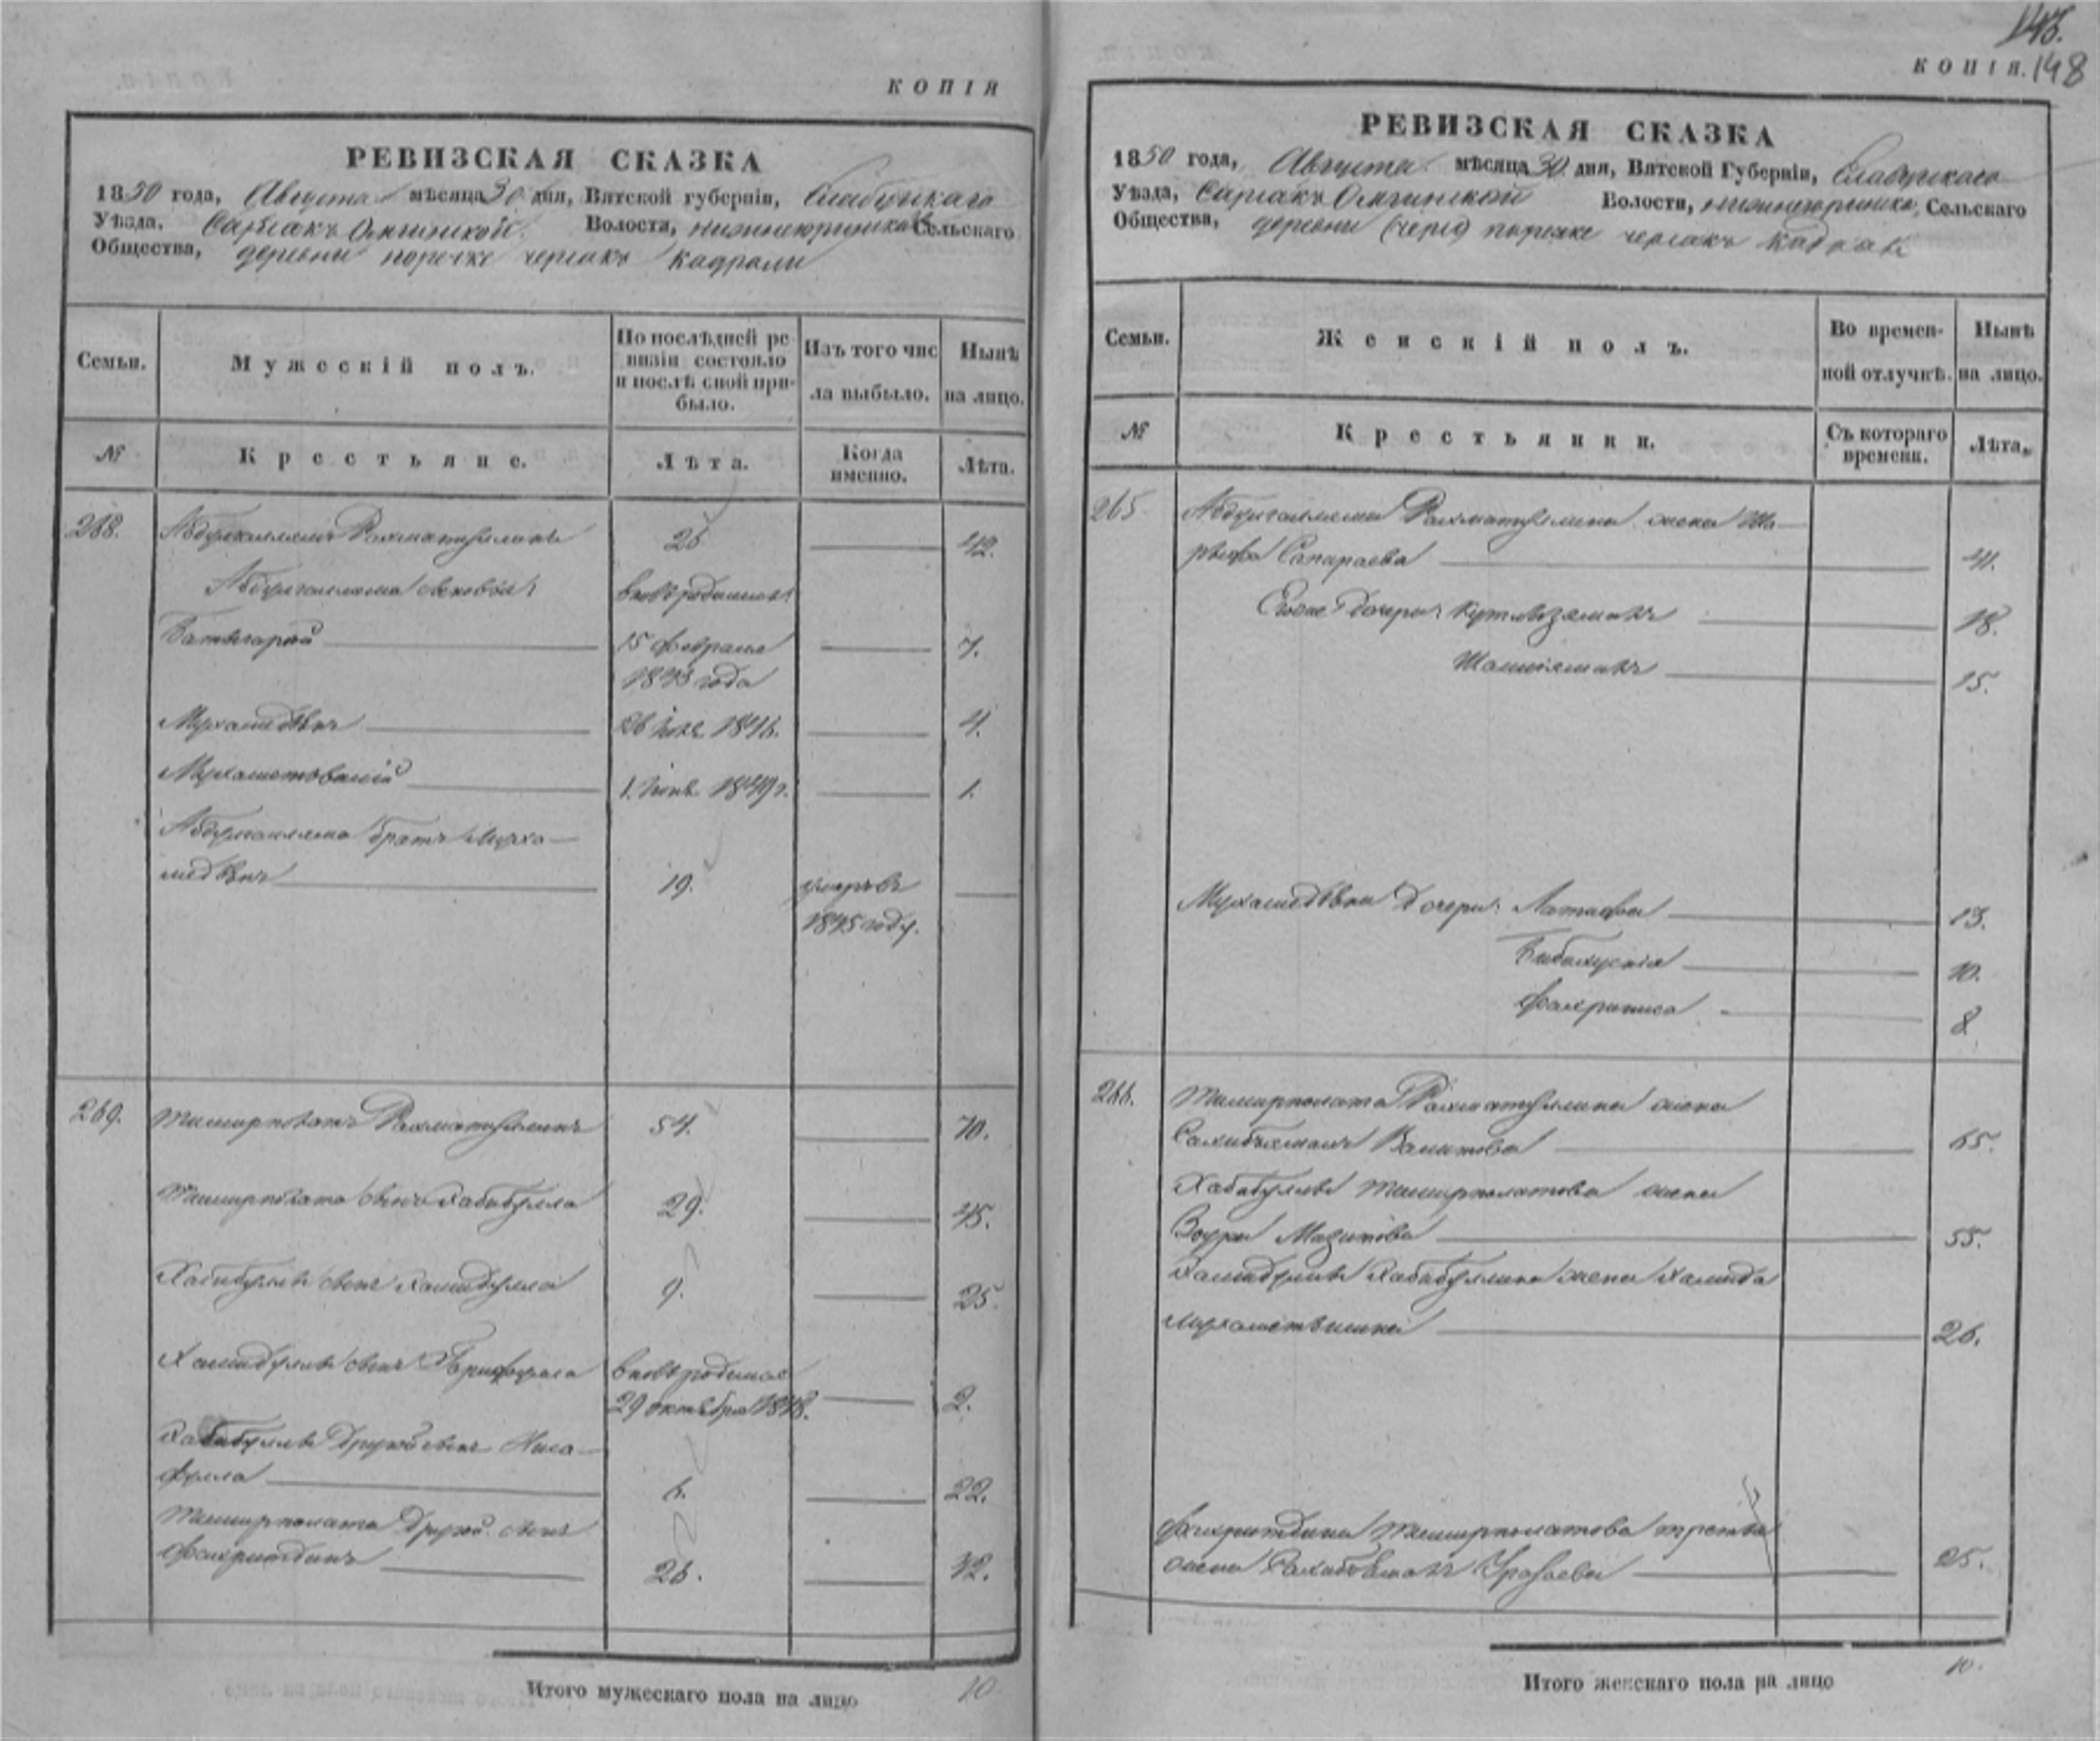 КОПІЯ
РЕВИЗСКАЯ СКАЗКА
1850 года, Августа мѣсяца 30 дня, Вятской губерніи, Елабужскаго
Уѣзда, Сарсакъ Омгинской Волости, Сельскаго
Общества, деревни пореске черсакъ
Семьи.
Мужескій полъ.
По послѣдней ре-
визіи состояло
и послѣ оной при-
было.
Изъ того чис
ла выбыло.
Нынѣ
на лицо.
№
Крестьяне.
Лѣта.
Когда
именно.
Лѣта.
268. Абдулгаллямъ Рахматуллинъ 26 42.
Абдулгалляма сыновья: вновьрожденные:
Батыгарей 15 февраля 7.
1843 года
Мухамедѣянъ 26 1846. 4.
Мухаметвалій 1. 1849 г. 1.
Абдулгалляма братъ Муха-
медѣянъ 19. умеръ въ
1845 году.
269. Темирполатъ Рахматуллинъ 54. 70.
Темирполата сынъ Хабибулла 29. 45.
Хабибуллы сынъ Хамидулла 9. 25.
Хамидуллы сынъ вновьрожденъ
29 октября 1848. 2.
Хабибуллы другой сынъ Ниса-
фулла 6. 22.
Темирполата другой сынъ
Фахритдинъ 26. 42.
Итого мужескаго пола на лицо 10
143.
КОПІЯ. 148
РЕВИЗСКАЯ СКАЗКА
1850 года, Августа мѣсяца 30 дня, Вятской Губерніи, Елабужскаго
Уѣзда, Сарсакъ Омгинской Волости, Сельскаго
Общества, деревни пореске черсакъ
Семьи.
Женскій полъ.
Во времен-
ной отлучкѣ.
Нынѣ
на лицо.
№
Крестьянки.
Съ котораго
времени.
Лѣта.
265 Абдулгалляма Рахматуллина жена Ша-
рыфа Сапараева 41.
дочери: 18.
15.
Мухамедѣяна дочери: Латыфа 13.
10.
Фахриниса 8
266. Темирполата Рахматуллина жена
Вашитова 65.
Хабибуллы Темирполатова жена
Мазитова 55.
Хамидуллы Хабибуллина жена Хамида
26.
Фахритдина Темирполатова третья
жена 25.
Итого женскаго пола на лицо 10.